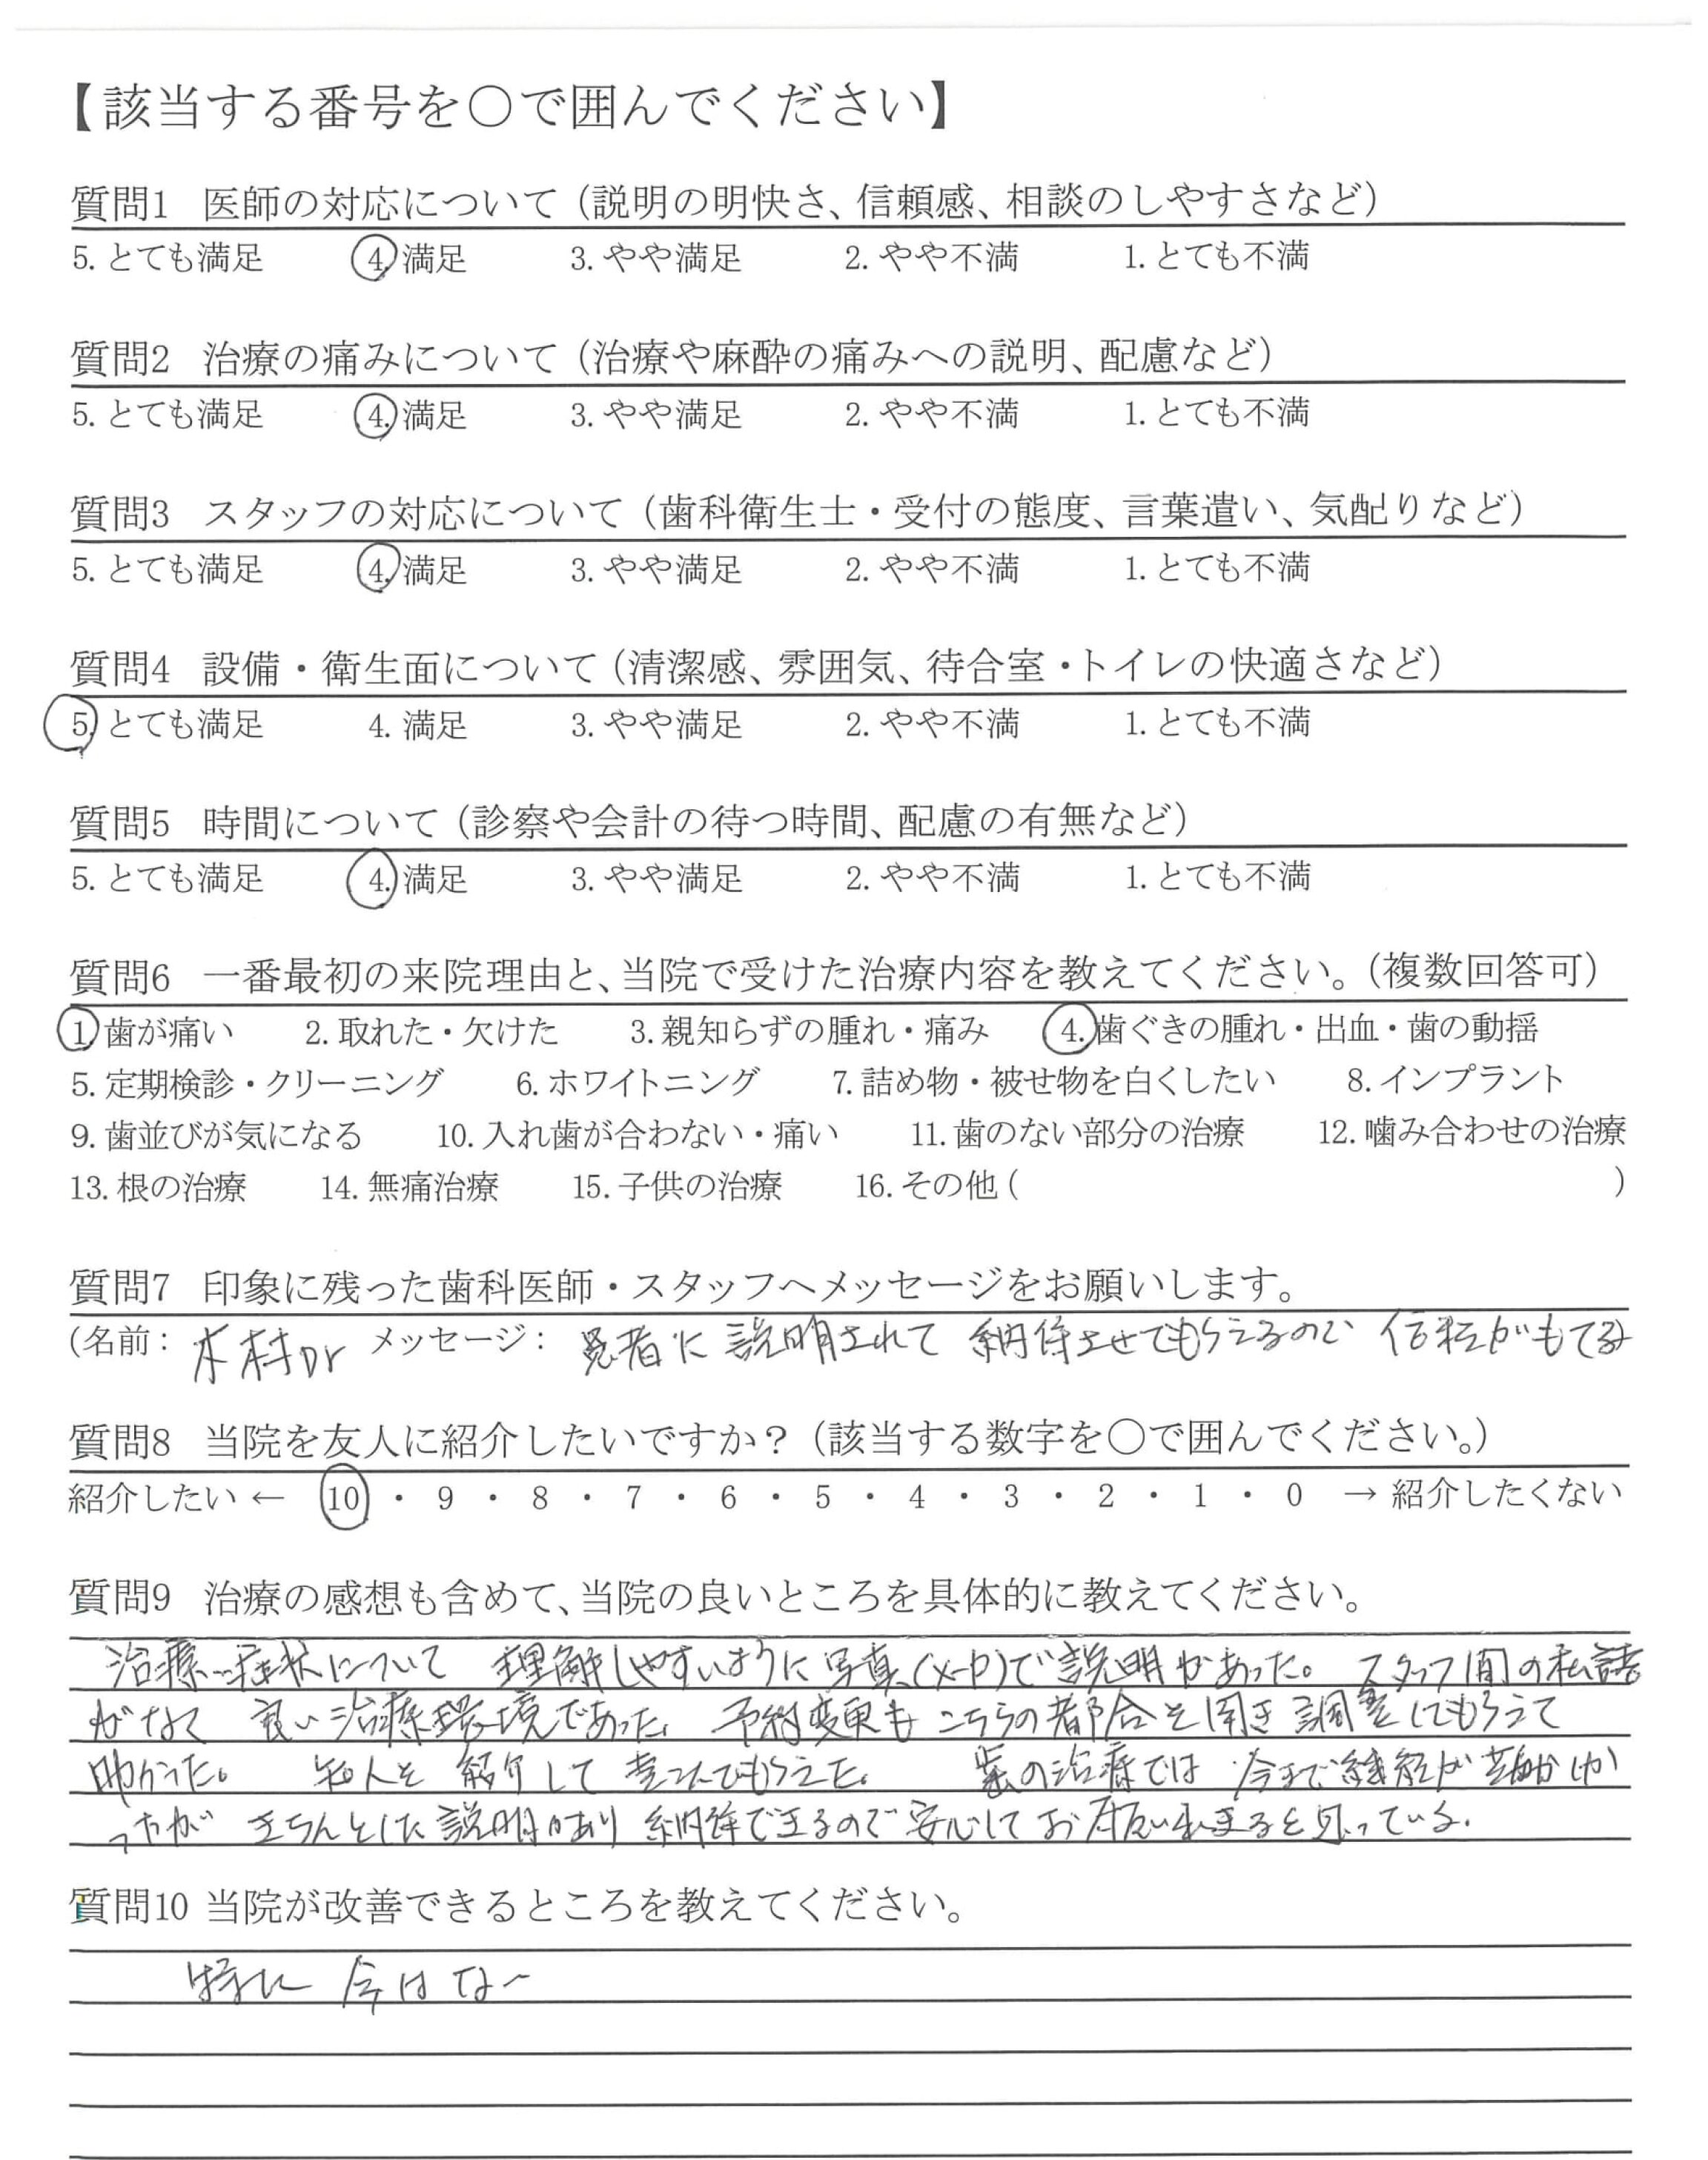 【該当する番号を〇で囲んでください】
質問1 医師の対応について（説明の明快さ、信頼感、相談のしやすさなど）
5. とても満足 4. 満足 3. やや満足 2. やや不満 1. とても不満
質問2 治療の痛みについて（治療や麻酔の痛みへの説明、配慮など）
5. とても満足 4. 満足 3. やや満足 2. やや不満 1. とても不満
質問3 スタッフの対応について（歯科衛生士・受付の態度、言葉遣い、気配りなど）
5. とても満足 4. 満足 3. やや満足 2. やや不満 1. とても不満
質問4 設備・衛生面について（清潔感、雰囲気、待合室・トイレの快適さなど）
5. とても満足 4. 満足 3. やや満足 2. やや不満 1. とても不満
質問5 時間について（診察や会計の待つ時間、配慮の有無など）
5. とても満足 4. 満足 3. やや満足 2. やや不満 1. とても不満
質問6 一番最初の来院理由と、当院で受けた治療内容を教えてください。（複数回答可）
1. 歯が痛い 2. 取れた・欠けた 3. 親知らずの腫れ・痛み 4. 歯ぐきの腫れ・出血・歯の動揺
5. 定期検診・クリーニング 6. ホワイトニング 7. 詰め物・被せ物を白くしたい 8. インプラント
9. 歯並びが気になる 10. 入れ歯が合わない・痛い 11. 歯のない部分の治療 12. 噛み合わせの治療
13. 根の治療 14. 無痛治療 15. 子供の治療 16. その他 ( )
質問7 印象に残った歯科医師・スタッフへメッセージをお願いします。
(名前： 木村Dr メッセージ： 患者に説明されて 納得させてもらえるので 信頼がもてる
質問8 当院を友人に紹介したいですか？（該当する数字を〇で囲んでください。）
紹介したい ← 10 ・ 9 ・ 8 ・ 7 ・ 6 ・ 5 ・ 4 ・ 3 ・ 2 ・ 1 ・ 0 → 紹介したくない
質問9 治療の感想も含めて、当院の良いところを具体的に教えてください。
治療 症状について 理解しやすいように写真(X-P)で説明があった。 スタッフ間の私語
がなく 良い治療環境であった。 予約変更も こちらの都合を聞き 調整してもらえて
助かった。 知人を 紹介して もらえた。 歯の治療では 今まで
ったが きちんとした説明があり 納得できるので安心して お願い出来ると思っている。
質問10 当院が改善できるところを教えてください。
特に 今はない